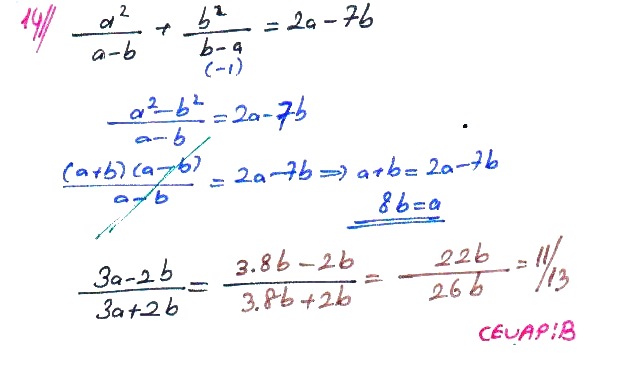 14// a²/(a-b) + b²/(b-a) = 2a-7b
(-1)
(a²-b²)/(a-b) = 2a-7b
(a+b)(a-b)/(a-b) = 2a-7b ⇒ a+b = 2a-7b
8b=a
(3a-2b)/(3a+2b) = (3.8b-2b)/(3.8b+2b) = 22b/26b = 11/13
CEVAP:B